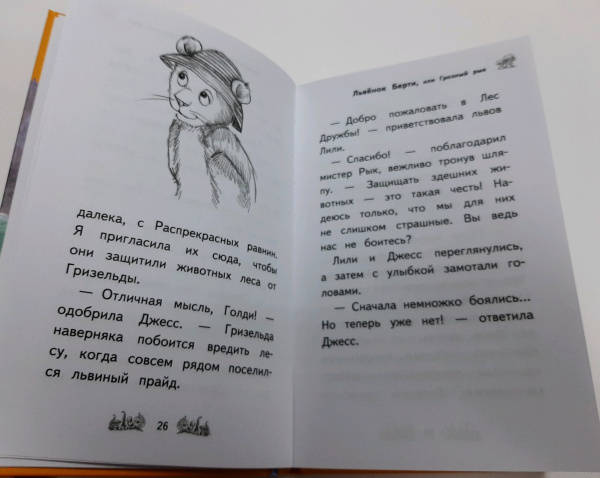 далека, с Распрекрасных равнин.
Я пригласила их сюда, чтобы
они защитили животных леса от
Гризельды.
— Отличная мысль, Голди! —
одобрила Джесс. — Гризельда
наверняка побоится вредить ле-
су, когда совсем рядом поселил-
ся львиный прайд.
26
Львёнок Берти, или Грозный рык
— Добро пожаловать в Лес
Дружбы! — приветствовала львов
Лили.
— Спасибо! — поблагодарил
мистер Рык, вежливо тронув шля-
пу. — Защищать здешних жи-
вотных — это такая честь! На-
деюсь только, что мы для них
не слишком страшные. Вы ведь
нас не боитесь?
Лили и Джесс переглянулись,
а затем с улыбкой замотали го-
ловами.
— Сначала немножко боялись...
Но теперь уже нет! — ответила
Джесс.